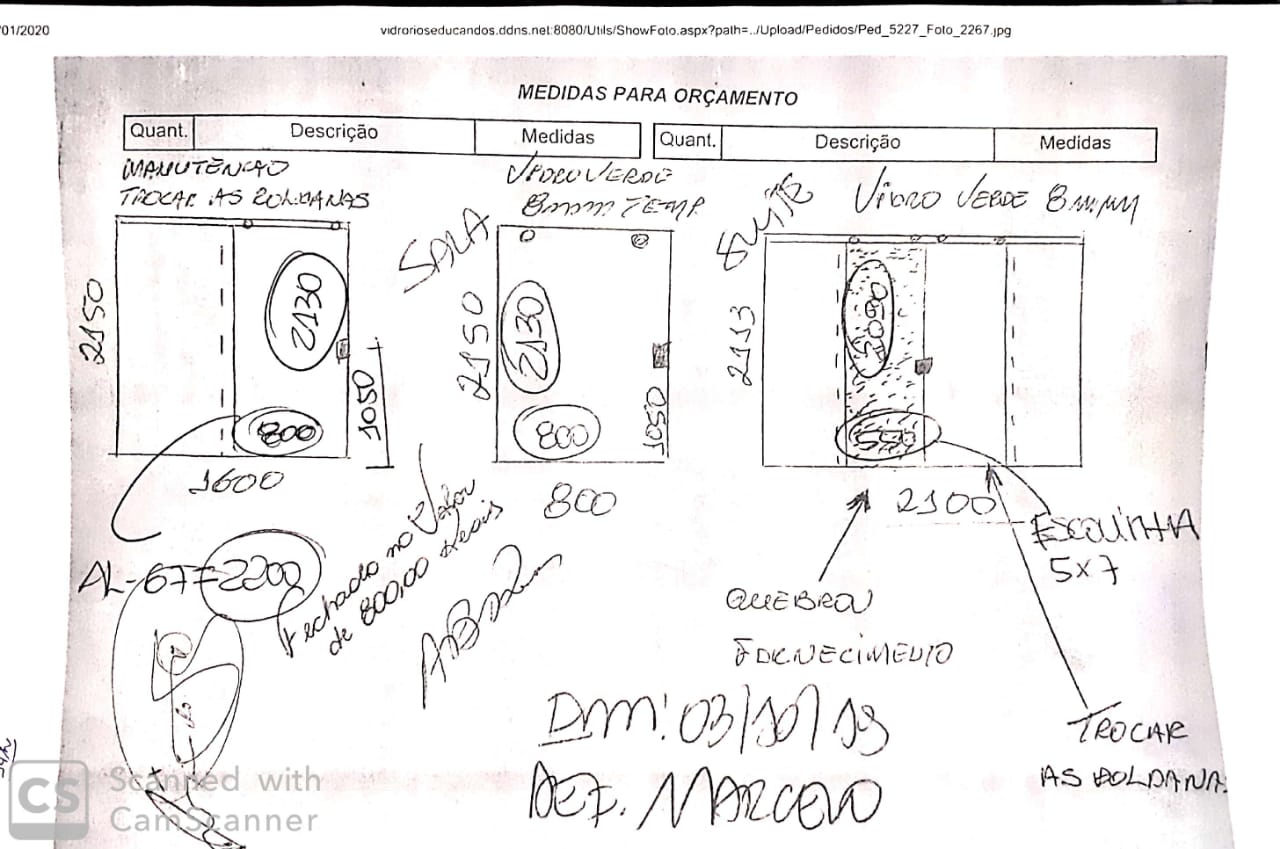 /01/2020
vidrorioseducandos.ddns.net:8080/Utils/ShowFoto.aspx?path=../Upload/Pedidos/Ped_5227_Foto_2267.jpg
MEDIDAS PARA ORÇAMENTO
Quant. Descrição Medidas
Quant. Descrição Medidas
MANUTENCAO
TROCAR AS ROLDANAS
2150
2130
800
1050
1600
SALA
VIDRO VERDE
8mm TEMP.
2150
2130
800
1050
800
VIDRO VERDE 8MM
2113
2100
ESCOLINHA
5x7
QUEBROU
FORNECIMENTO
TROCAR
AS ROLDANA
AL-67=2200
Fechado no Valor
de 800,00 Reais
DM: 03/10/19
REF. MARCELO
CS Scanned with
CamScanner